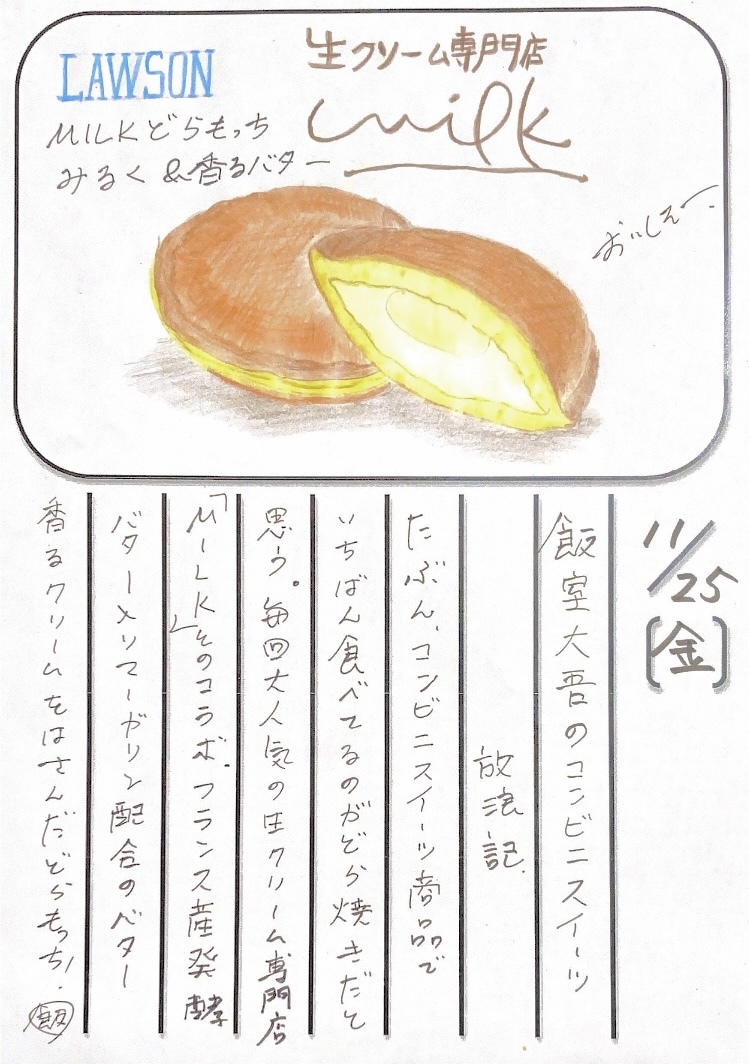 LAWSON
MILKどらもっち
みるく&香るバター
生クリーム専門店
milk
おいしえ〜.
11/25
[金]
飯室大吾のコンビニスイーツ
放浪記.
たぶん、コンビニスイーツ商品で
いちばん食べてるのがどら焼きだと
思う。毎回大人気の生クリーム専門店
「MILK」とのコラボ.フランス産発酵
バター入りマーガリン配合のバター
香るクリームをはさんだどらもっち!.
飯